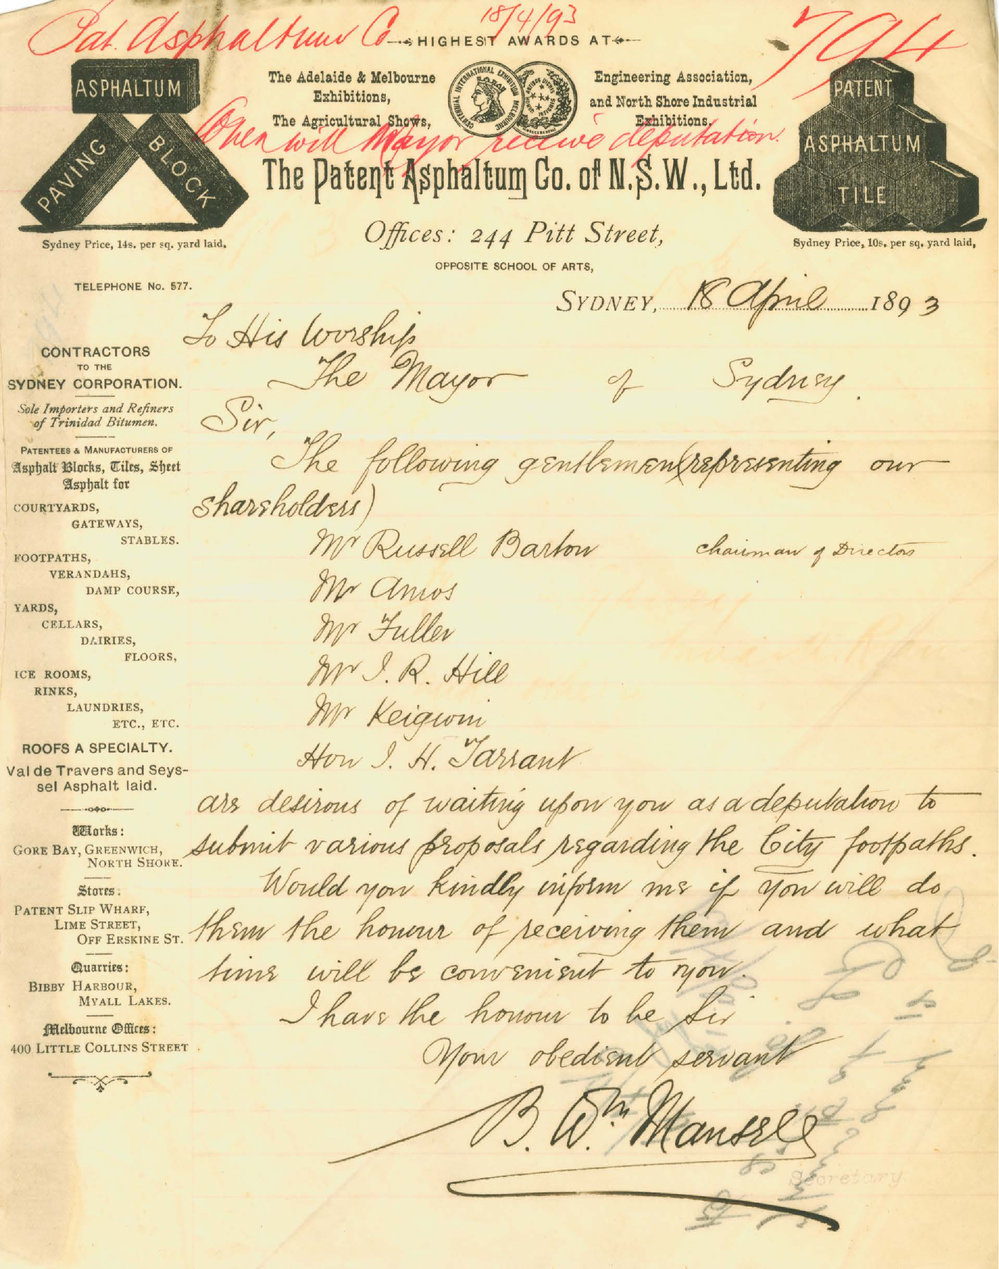 Pat. Asphaltum Co
18/4/93
794
When will Mayor receive deputation.
HIGHEST AWARDS AT
The Adelaide & Melbourne
Exhibitions,
The Agricultural Shows,
Engineering Association,
and North Shore Industrial
Exhibitions.
ASPHALTUM
PAVING
BLOCK
Sydney Price, 14s. per sq. yard laid.
PATENT
ASPHALTUM
TILE
Sydney Price, 10s. per sq. yard laid,
The Patent Asphaltum Co. of N.S.W., Ltd.
Offices: 244 Pitt Street,
OPPOSITE SCHOOL OF ARTS,
TELEPHONE No. 577.
SYDNEY, 18 April 1893
CONTRACTORS
TO THE
SYDNEY CORPORATION.
Sole Importers and Refiners
of Trinidad Bitumen.
PATENTEES & MANUFACTURERS OF
Asphalt Blocks, Tiles, Sheet
Asphalt for
COURTYARDS,
GATEWAYS,
STABLES.
FOOTPATHS,
VERANDAHS,
DAMP COURSE,
YARDS,
CELLARS,
DAIRIES,
FLOORS,
ICE ROOMS,
RINKS,
LAUNDRIES,
ETC., ETC.
ROOFS A SPECIALTY.
Val de Travers and Seys-
sel Asphalt laid.
Works:
GORE BAY, GREENWICH,
NORTH SHORE.
Stores:
PATENT SLIP WHARF,
LIME STREET,
OFF ERSKINE ST.
Quarries:
BIBBY HARBOUR,
MYALL LAKES.
Melbourne Offices:
400 LITTLE COLLINS STREET
To His Worship
The Mayor of Sydney.
Sir,
The following gentlemen (representing our
shareholders)
Mr Russell Barton Chairman of Directors
Mr Amos
Mr Fuller
Mr J. R. Hill
Mr Keigwin
Hon J. H. Tarrant
are desirous of waiting upon you as a deputation to
submit various proposals regarding the City footpaths.
Would you kindly inform me if you will do
them the honour of receiving them and what
time will be convenient to you.
I have the honour to be Sir
Your obedient servant
B. Wm. Mansell
Secretary